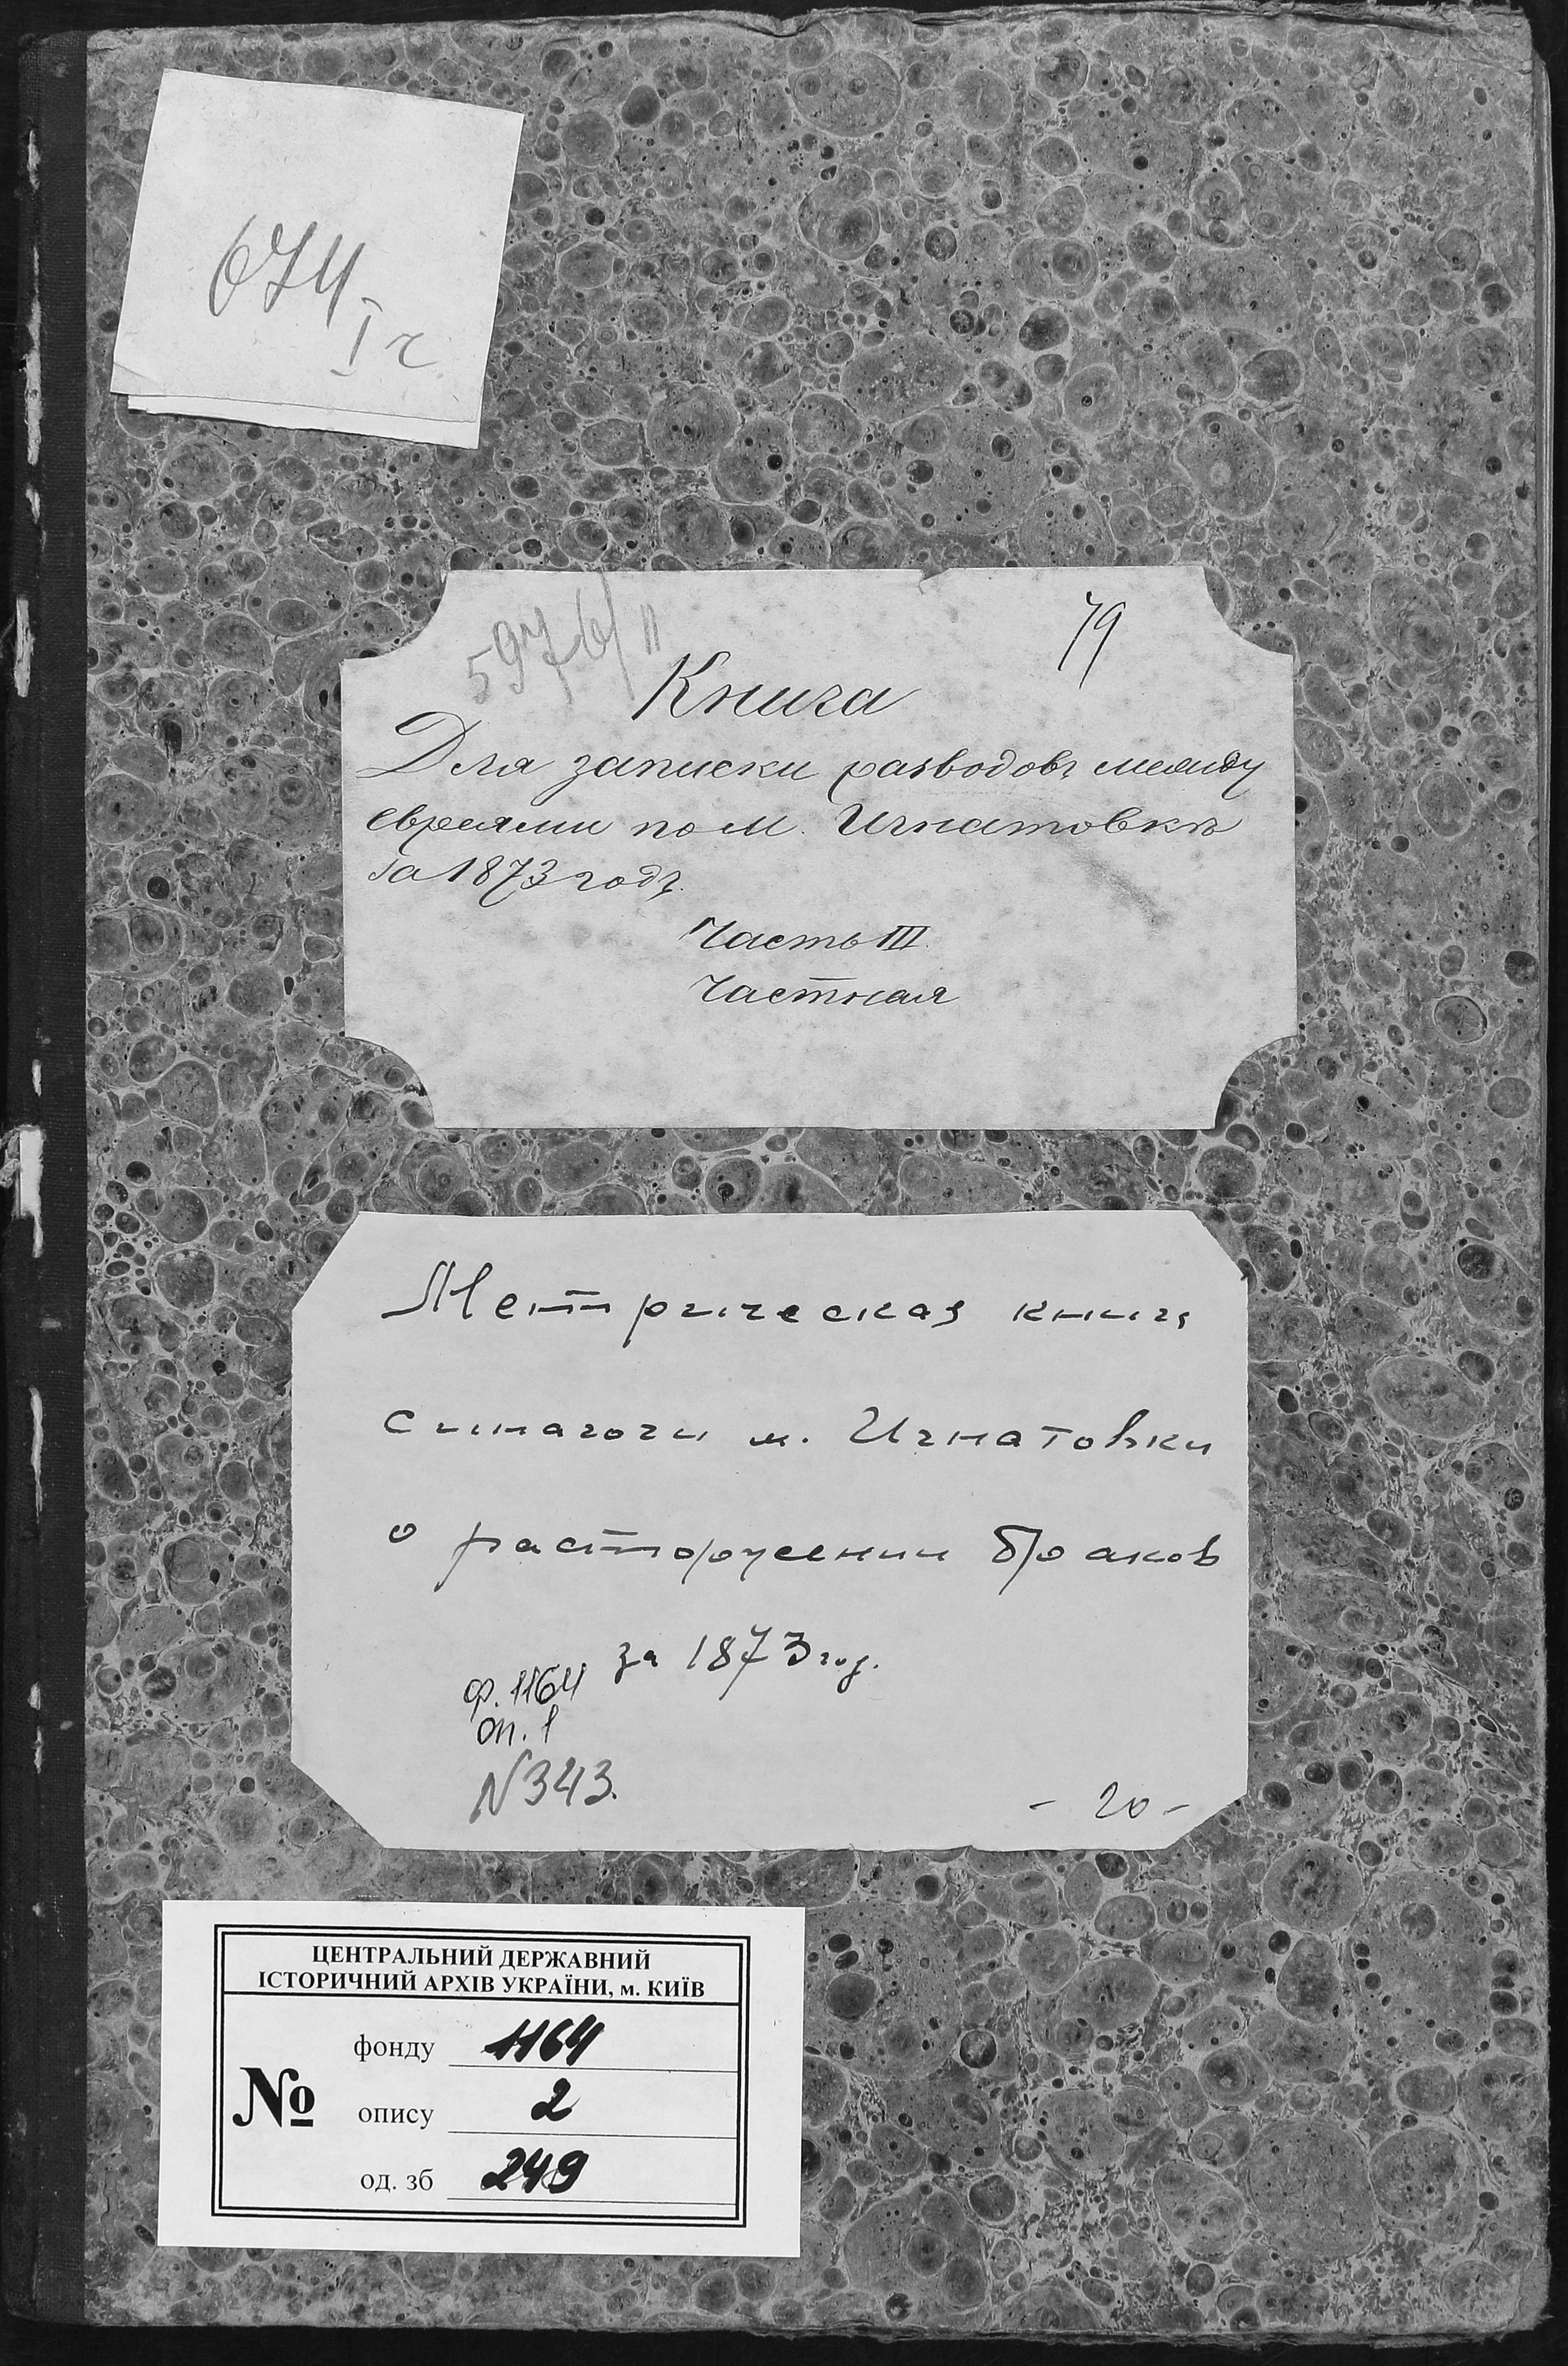 674
I г
5976/II
79
Книга
Для записки разводовъ между
евреями по м. Игнатовкѣ
за 1873 годъ.
Часть III.
Частная
Метрическая книга
синагоги м. Игнатовки
о расторжении браков
за 1873 год.
ф. 1164
оп. 1
N 343.
- 20 -
ЦЕНТРАЛЬНИЙ ДЕРЖАВНИЙ
ІСТОРИЧНИЙ АРХІВ УКРАЇНИ, м. КИЇВ
№
фонду 1164
опису 2
од. зб 249